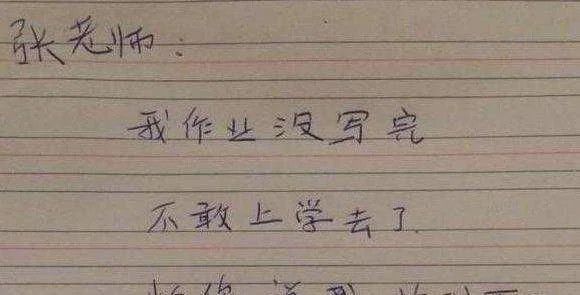 张老师：
我作业没写完
不敢上学去了.
怕你